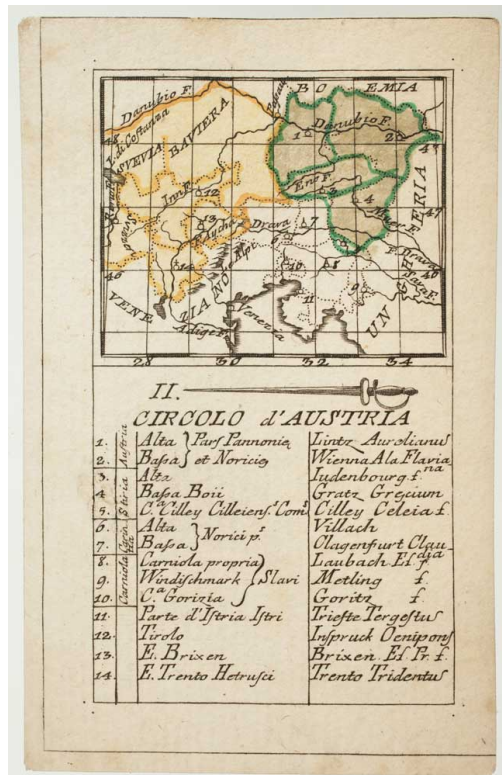 BOEMIA
Danubio F.
L. di Costanza
SVEVIA
BAVIERA
Danubio F.
1
2
48
Inn F.
Ens F.
3
4
12
13
Drava
7
6
5
Muer F.
47
ERIA
F. Drava
Sava F.
46
46
14
10
8
9
11
VENE
ZIA
NO
Alpi
Adige F.
Venezia
UN
28
30
32
34
II.
CIRCOLO d'AUSTRIA
Austria
1. Alta } Pars Pannoniæ Lintz Aurelianus
2. Bassa } et Noricis Wienna Ala Flavia
Stiria
3. Alta Iudenbourg f.na
4 Bassa Boii Gratz Greçium
5. C.a Cilley Cilleiens.s Com.s Cilley Celeia f.
6. Alta } Norici p.s Villach
7. Bassa } Clagenfurt Claudia
Carniola
8. Carniola propria } Laubach Es f.
9. Windischmark } Slavi Metling f.
10. C.a Gorizia } Goritz f.
11. Parte d'Istria Istri Trieste Tergestus
12. Tirolo Inspruck Oenipons
13. E. Brixen Brixen Es Pr. f.
14. E. Trento Hetrusci Trento Tridentus